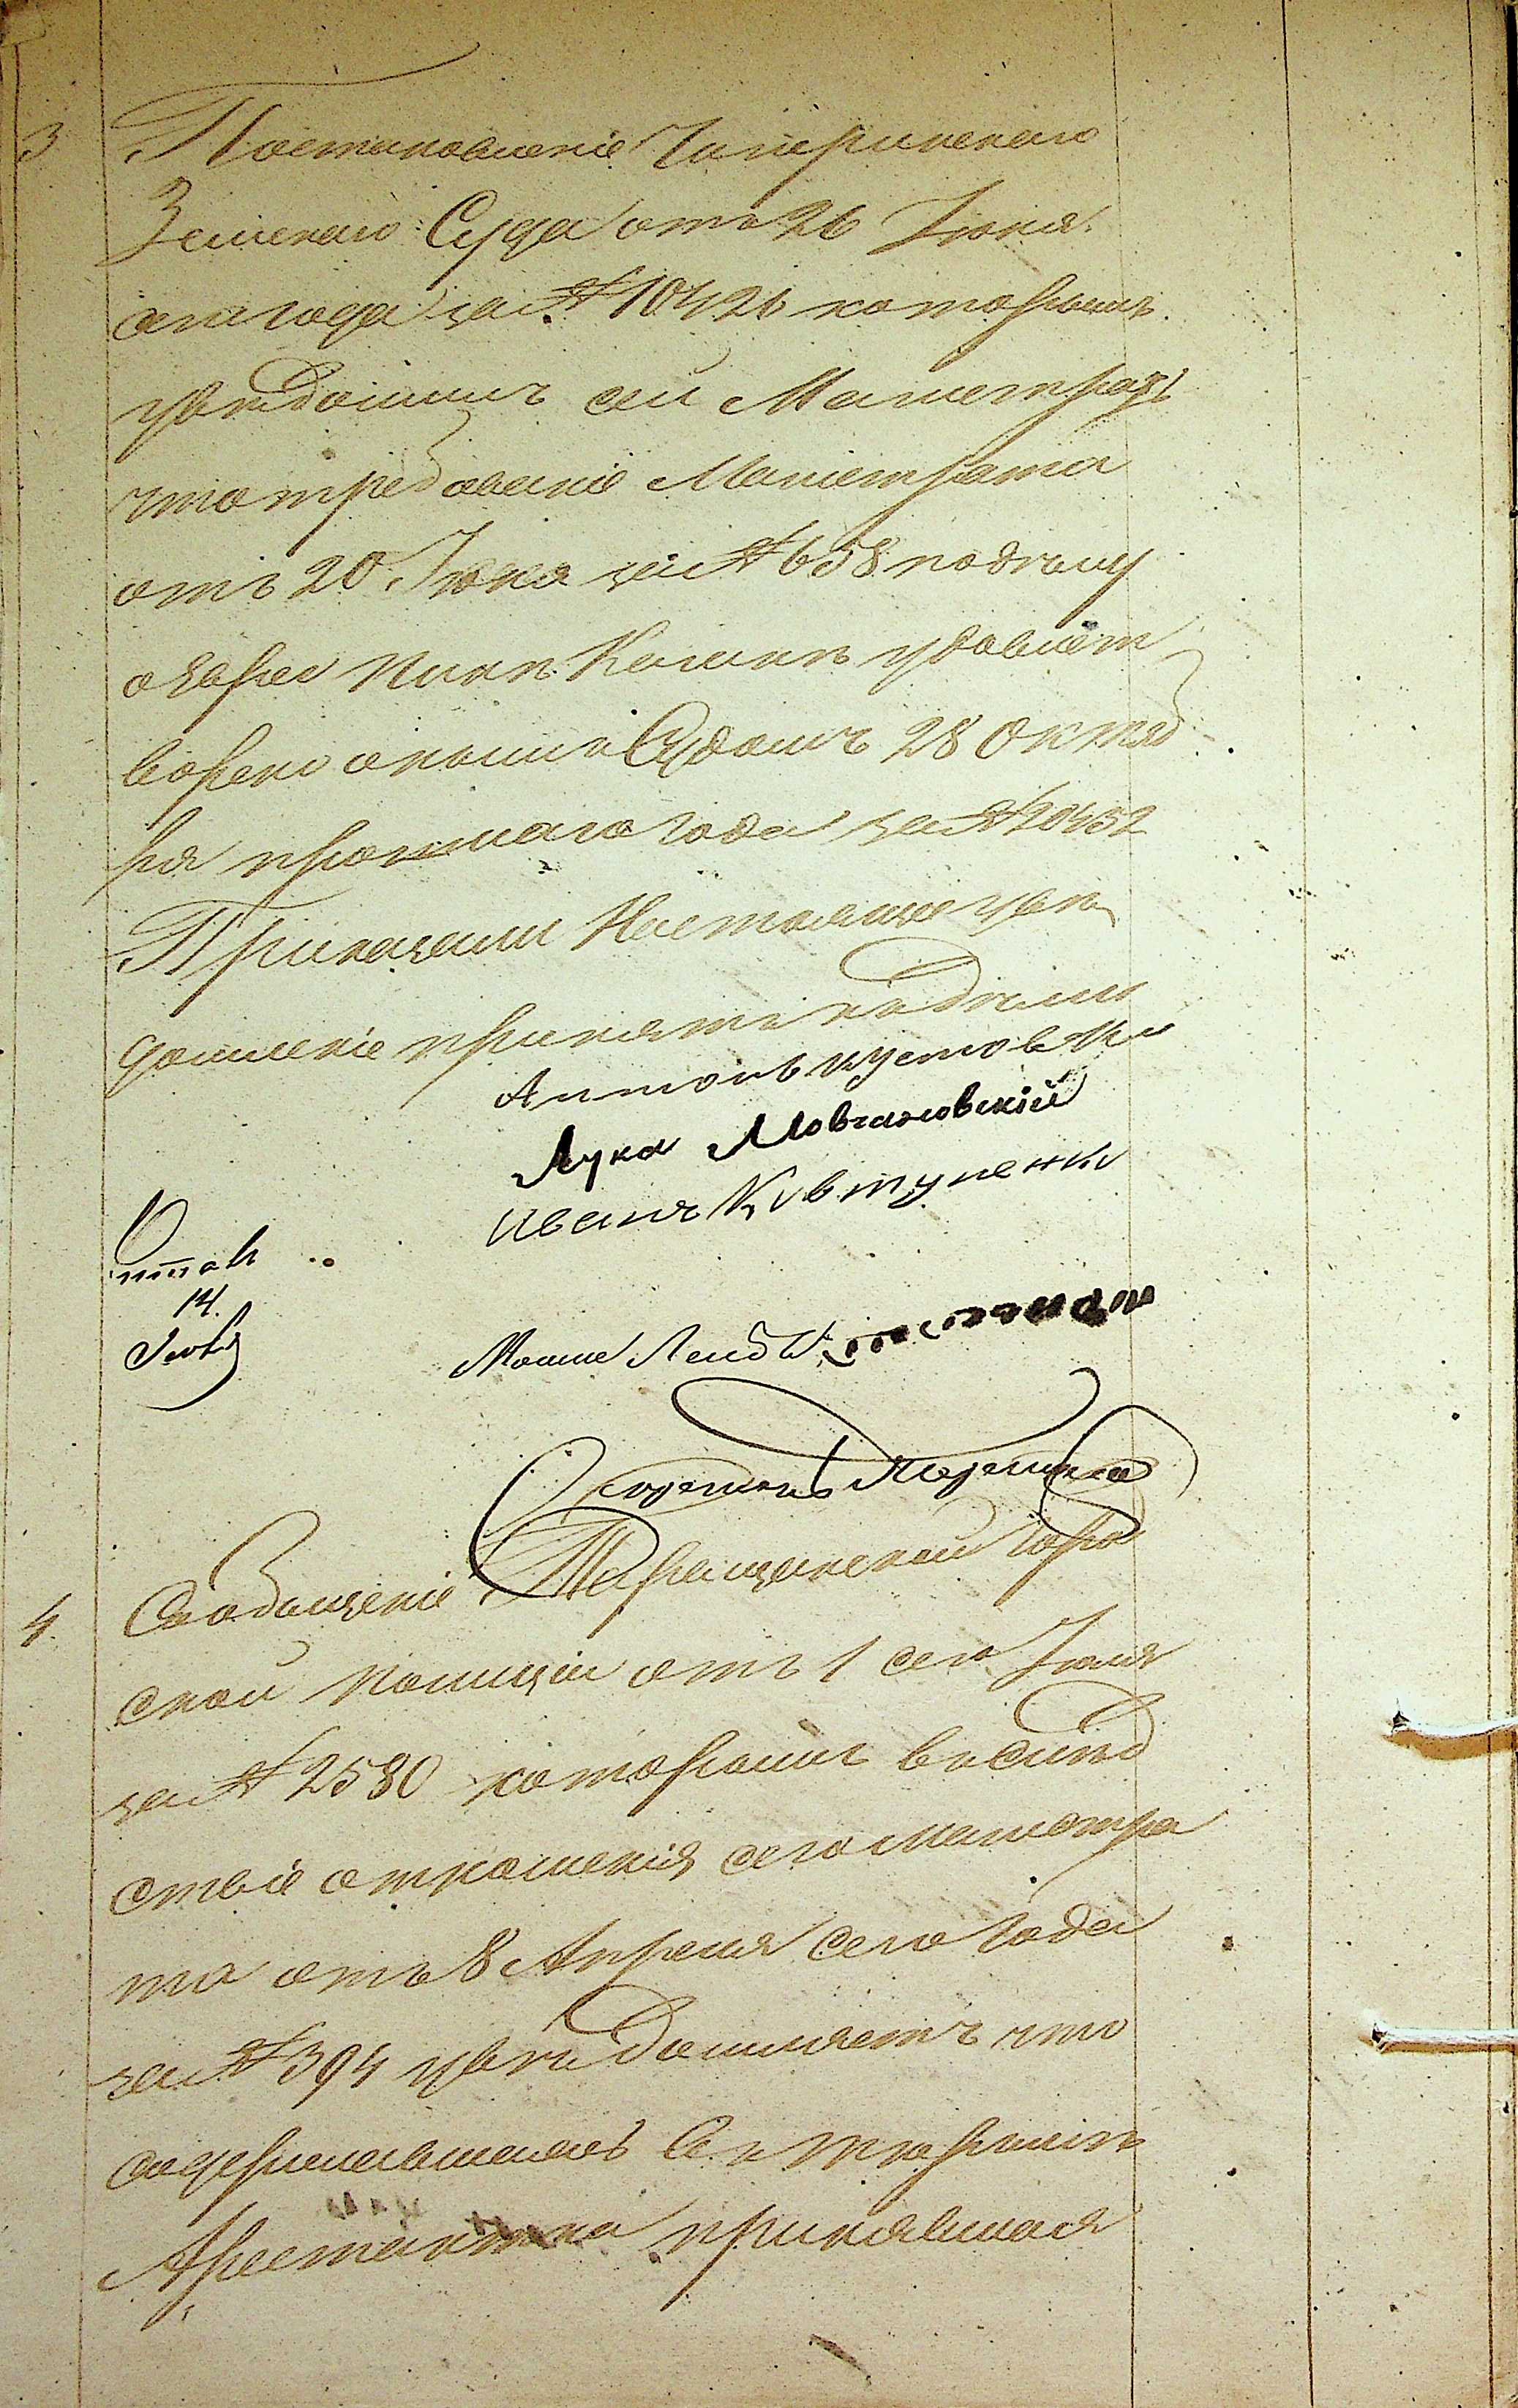 3
Постановленіе Чигиринскаго
Земскаго Суда отъ 26 Іюня
сего года за № 10426 которымъ
увѣдомилъ сей Магистратъ
что требованіе Магистрата
отъ 20 Іюня за № 658 по дѣлу
о удовлет
ворено онымъ Судомъ 28 Октяб
ря прошлаго года за № 20452
Приказали Настоящее увѣ
домленіе принять къ дѣлу
Антонъ
Лука Мовчановскій
Иванъ Ковтуненко
14.
Мошко Лейб
4.
Сообщеніе Таращанской Город
ской полиціи отъ 1 сего Іюля
за № 2580 которымъ въ слѣд
ствіе отношенія сего Магистра
та отъ 8 Апреля сего года
за № 394 увѣдомляетъ что
содержавшаясь въ тюрьмѣ
Арестантка принявшая